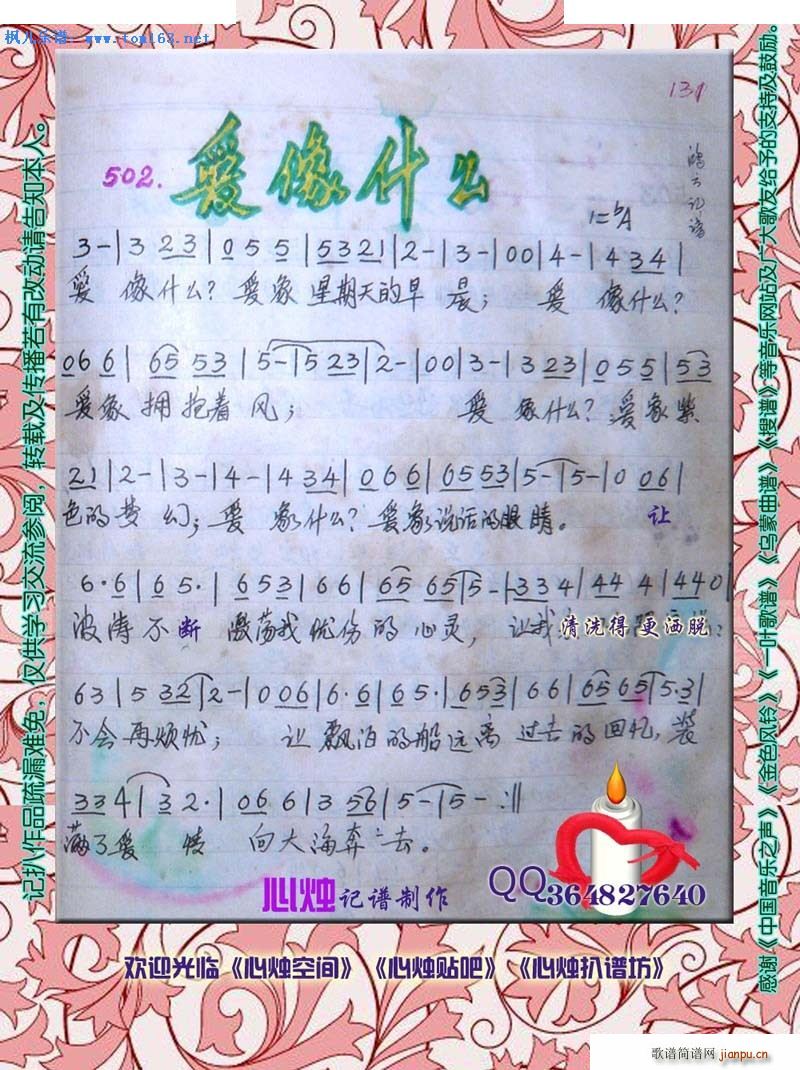 枫儿乐谱：www.tom163.net
131
502. 爱像什么
鸿云记谱
1=♭A
3-|3 23|0 5 5|5321|2-|3-|00|4-|4 34|
爱 像什么？爱象 星期天的早 晨； 爱 像什么？
06 6|65 53|5-|5 23|2-|00|3-|3 23|0 5 5|53
爱象 拥抱着 风； 爱 象什么？爱象紫
21|2-|3-|4-|4 34|0 6 6|65 53|5-|5-|0 06|
色的梦 幻；爱 象什么？爱象说话的眼睛。 让
6·6|6 5·|6 53|6 6|65 65|5-|33 4|44 4|440|
波涛不断 激荡我忧伤的 心灵，让我 清洗得更洒脱：
63|5 32|2-|0 06|6·6|65·|653|66|65 65|5·3|
不会再烦忧； 让飘泊的船远离 过去的回忆，装
33 4|3 2·|06 6|3 56|5-|5-:||
满了爱 情 向大海奔 去。
心烛记谱制作
QQ364827640
欢迎光临《心烛空间》《心烛贴吧》《心烛扒谱坊》
记扒作品疏漏难免，仅供学习交流参阅，转载及传播若有改动请告知本人。
感谢《中国音乐之声》《金色风铃》《一叶歌谱》《乌蒙曲谱》《搜谱》等音乐网站及广大歌友给予的支持及鼓励。
歌谱简谱网
jianpu.cn